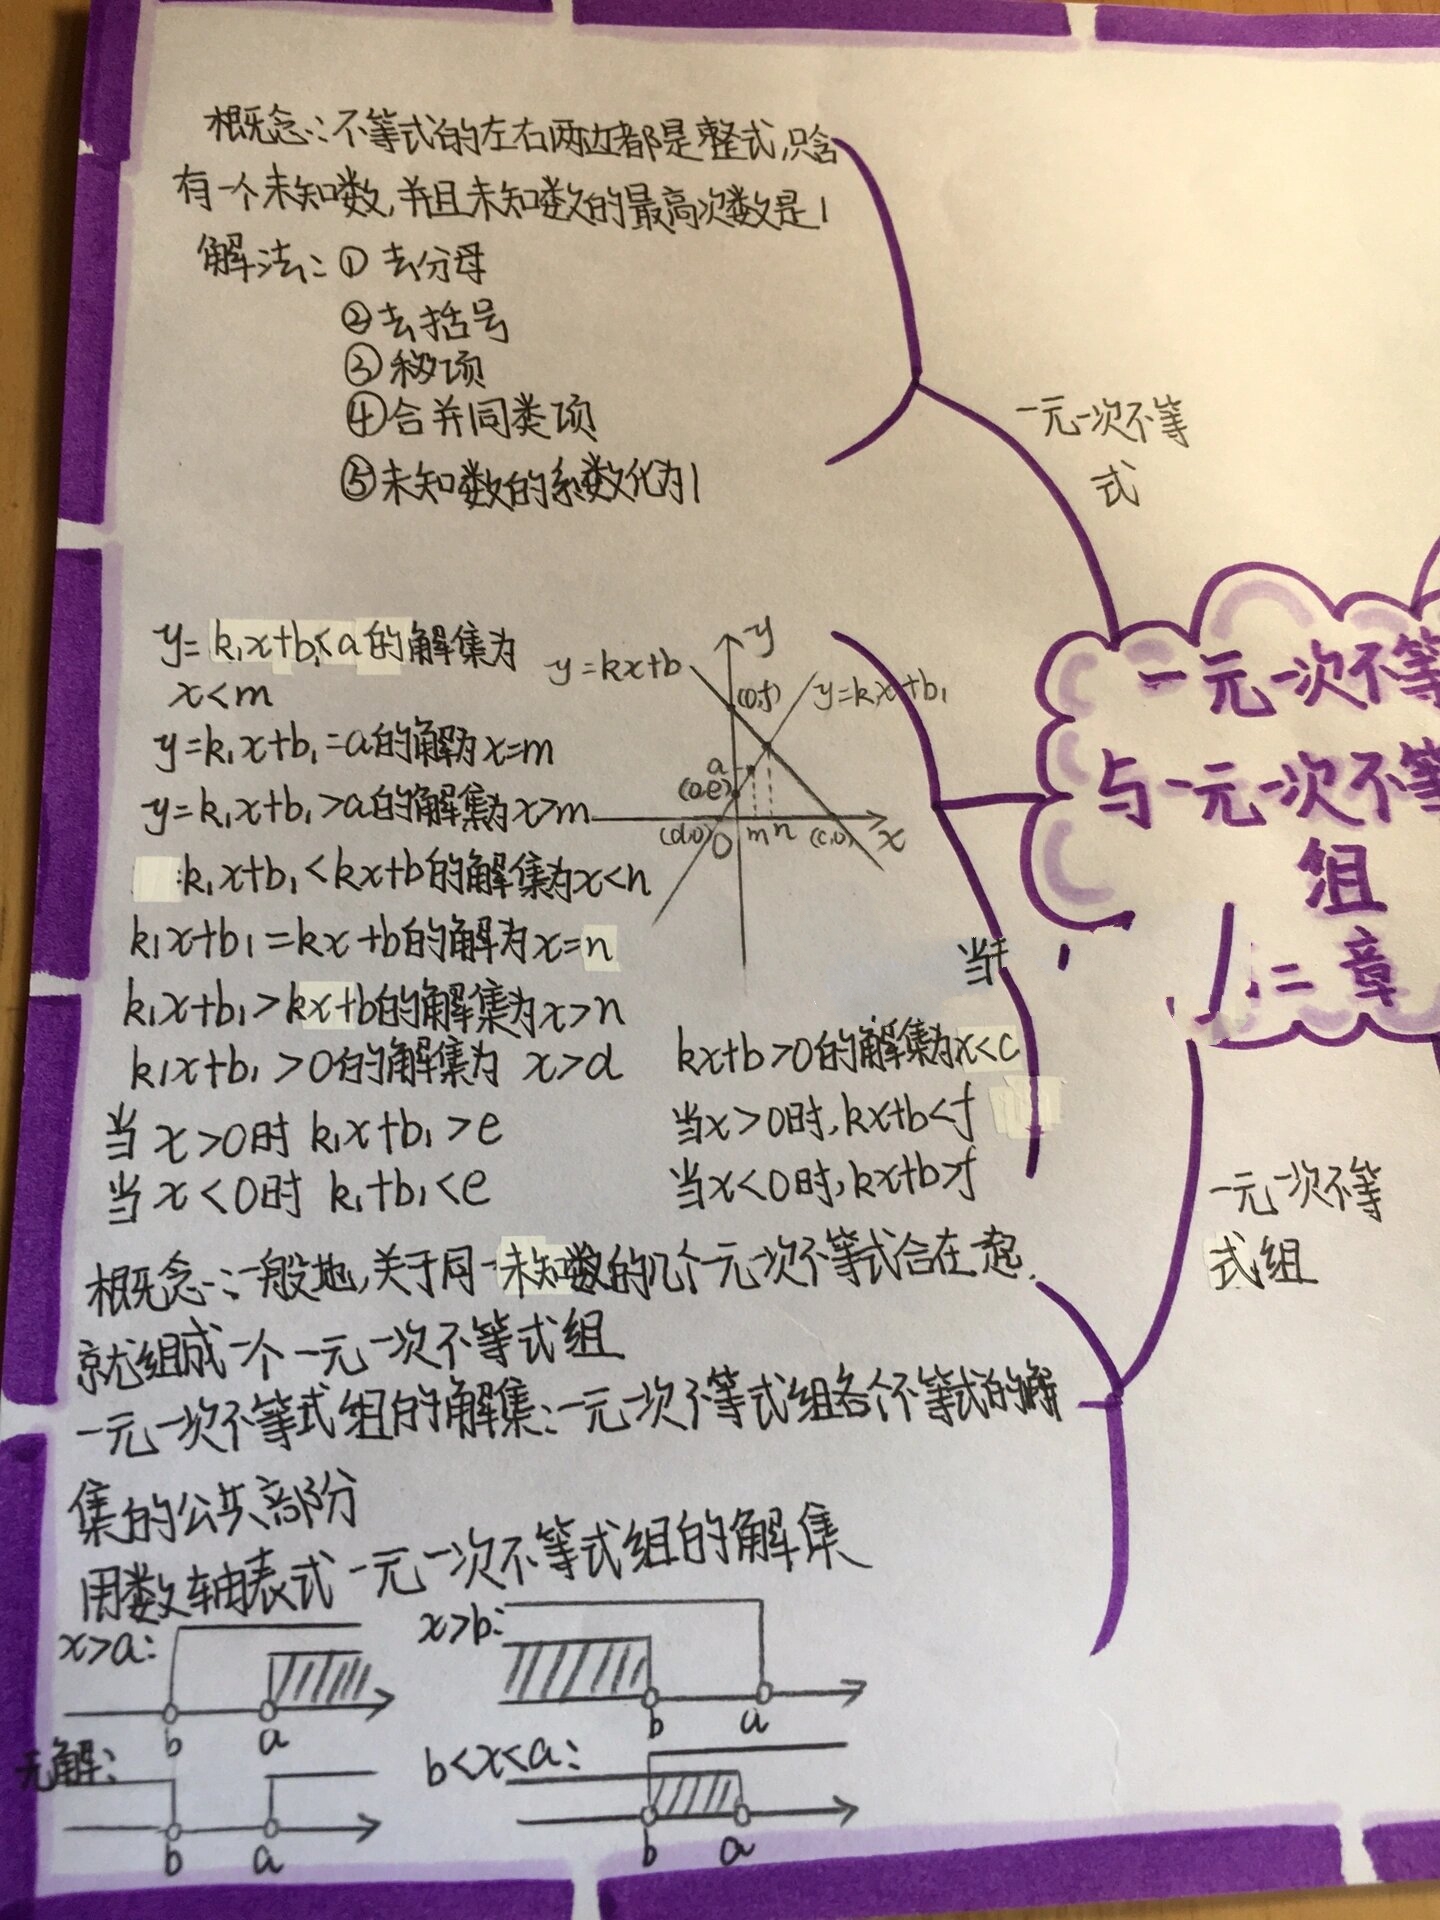 概念:不等式的左右两边都是整式,只含
有一个未知数,并且未知数的最高次数是1
解法:①去分母
②去括号
③移项
④合并同类项
⑤未知数的系数化为1
一元一次不等
式
y=k₁x+b₁<a的解集为
x<m
y=k₁x+b₁=a的解为x=m
y=k₁x+b₁>a的解集为x>m
k₁x+b₁<kx+b的解集为x<n
k₁x+b₁=kx+b的解为x=n
k₁x+b₁>kx+b的解集为x>n
k₁x+b₁>0的解集为 x>d
当x>0时 k₁x+b₁>e
当x<0时 k₁+b₁<e
kx+b>0的解集为x<c
当x>0时,kx+b<f
当x<0时,kx+b>f
y=kx+b
y
(0,f)
y=kx+b₁
a
(0,e)
(d,0)
0
m
n
(c,0)
x
一元一次不等
与一元一次不等
组
二章
一元一次不等
式组
概念:一般地,关于同一未知数的几个一元一次不等式合在一起,
就组成一个一元一次不等式组
一元一次不等式组的解集:一元一次不等式组各个不等式的解
集的公共部分
用数轴表式一元一次不等式组的解集
x>a:
b
a
x>b:
b
a
无解:
b
a
b<x<a:
b
a